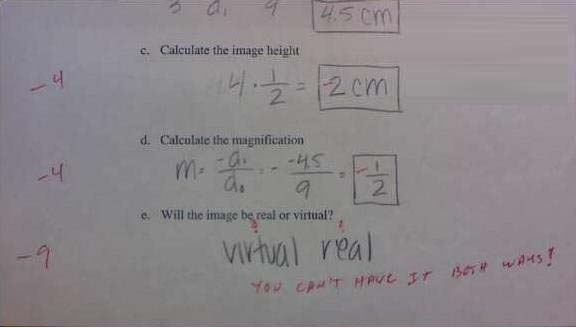 4.5 cm
c. Calculate the image height
-4
4 · 1/2 = -2 cm
d. Calculate the magnification
-4
m = -di/do = - -4.5/9 = -1/2
e. Will the image be real or virtual?
-9
virtual real
YOU CAN'T HAVE IT BOTH WAYS!